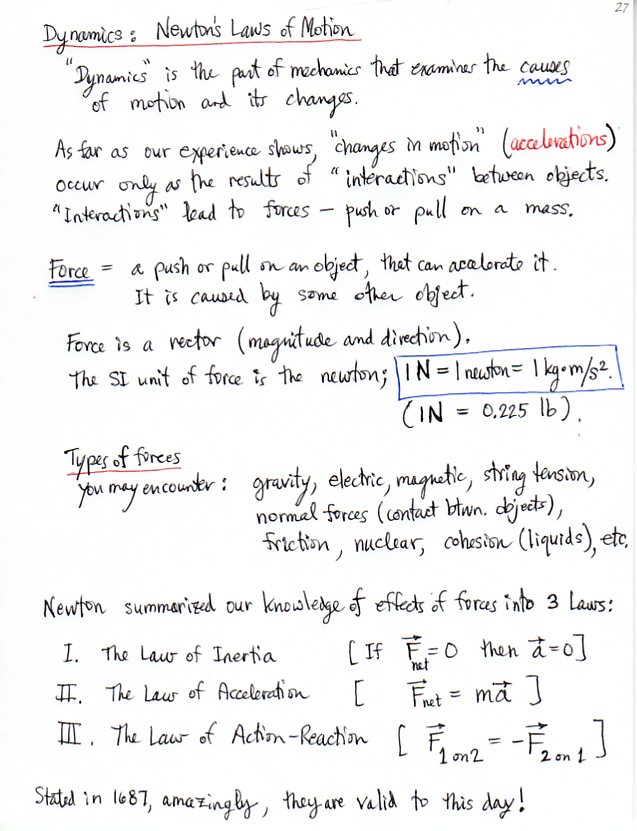 27
Dynamics: Newton's Laws of Motion
"Dynamics" is the part of mechanics that examines the causes
of motion and its changes.
As far as our experience shows, "changes in motion" (accelerations)
occur only as the results of "interactions" between objects.
"Interactions" lead to forces – push or pull on a mass.
Force = a push or pull on an object, that can accelerate it.
It is caused by some other object.
Force is a vector (magnitude and direction).
The SI unit of force is the newton; 1 N = 1 newton = 1 kg•m/s².
(1N = 0.225 lb).
Types of forces
you may encounter: gravity, electric, magnetic, string tension,
normal forces (contact btwn. objects),
friction, nuclear, cohesion (liquids), etc.
Newton summarized our knowledge of effects of forces into 3 Laws:
I. The Law of Inertia [If F⃗net = 0 then a⃗ = 0]
II. The Law of Acceleration [F⃗net = ma⃗]
III. The Law of Action-Reaction [F⃗1 on 2 = -F⃗2 on 1]
Stated in 1687, amazingly, they are valid to this day!